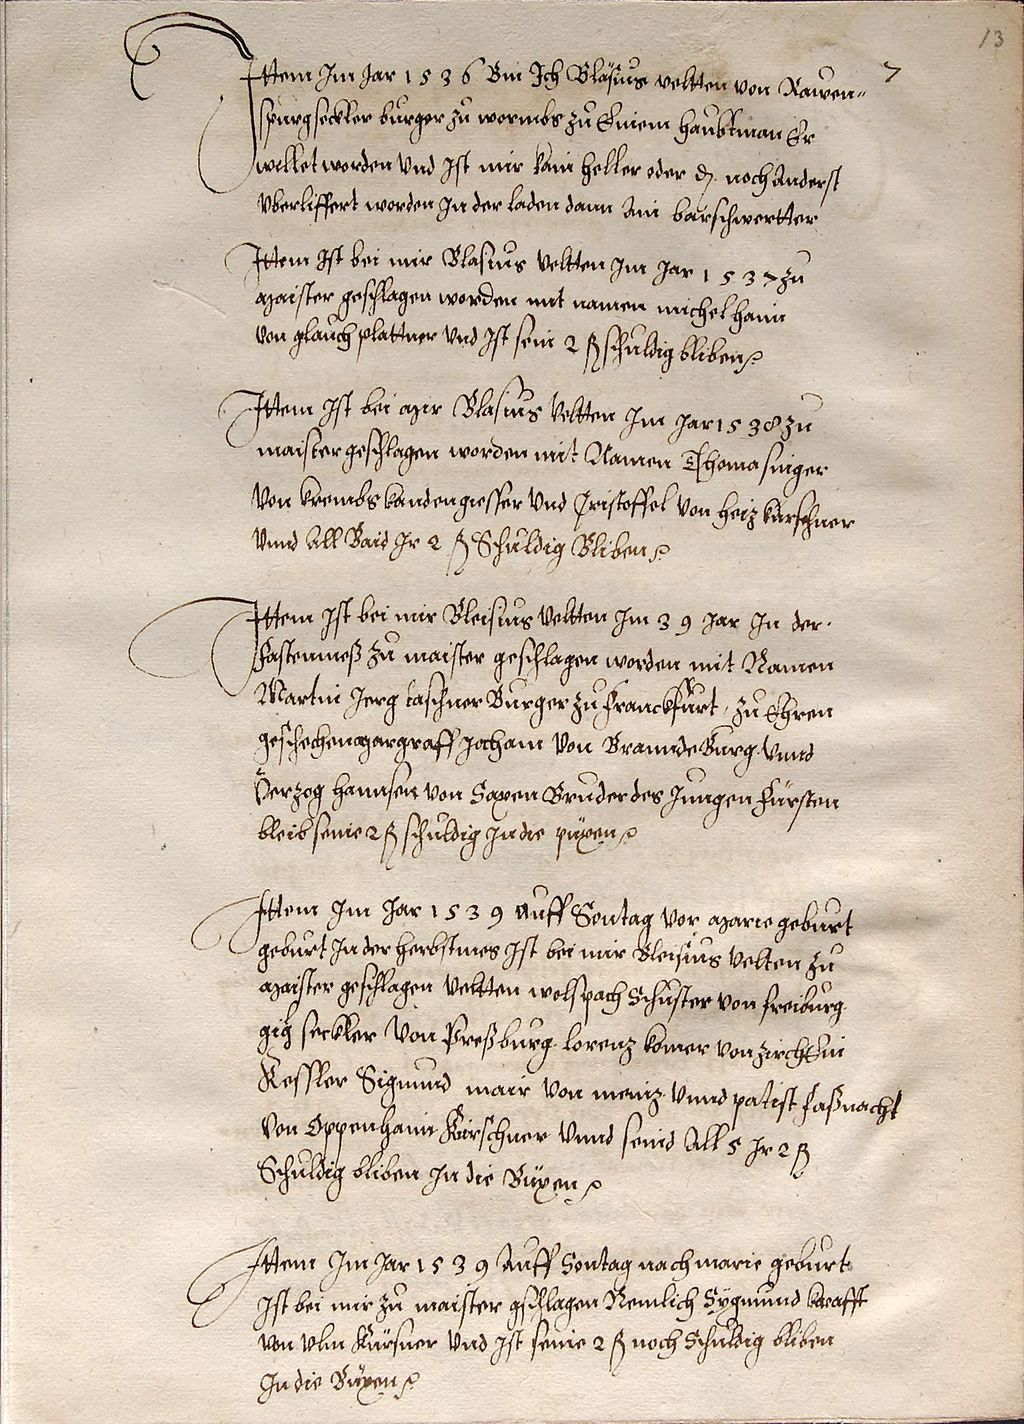 13
7
Ittem Im Jar 1536 Bin Ich Blasius veltten von Rawen-
spurg seckler burger zu wormbs zu Einem haubtman Er
wellet worden Vnd Ist mir kain heller oder ₰ noch Anderst
Vberliffert worden In der laden dann Ain barschwertter
Ittem Ist bei mir Blasius Veltten Im Jar 1537 zu
Maister geschlagen worden mit namen michel hann
von glauch plattner Vnd Ist sein 2 ß schuldig bliben
Ittem Ist bei Mir Blasius Veltten Im Jar 1538 zu
maister geschlagen worden mit Namen Thoma singer
Von krembs kandengiesser Vnd Cristoffel von heiz kürschner
Vnnd All Baid Ir 2 ß Schuldig Bliben
Ittem Ist bei mir Bleisius Veltten Im 39 Jar In der
fastenmeß zu maister geschlagen worden mit Namen
Martin Jerg taschner Burger zu franckfurt zu Ehren
geschechen Margraff Jocham Von BranndeBurg Vnnd
Herzog Hannsen von Saxen Bruder des Jungen fürsten
bleib seine 2 ß schuldig In die püxen
Ittem Im Jar 1539 Auff Sontag vor Marie geburt
geburt In der herbstmes Ist bei mir Bleisius Velten zu
Maister geschlagen Veltten wolspach Schuster von freiburg
gilg seckler Von Preßburg lorenz komer von
Kessler Sigmund mair Von meniz Vnnd patist faßnacht
Von Oppenhaim Kirschner Vnnd seind All 5 Ir 2 ß
Schuldig bliben In die Büxen
Ittem Im Jar 1539 Auff Sontag nach marie geburt
Ist bei mir zu maister gschlagen Nemlich Sygmund krafft
von vlm Kürsner Vnd Ist seine 2 ß noch Schuldig bliben
In die Büxen